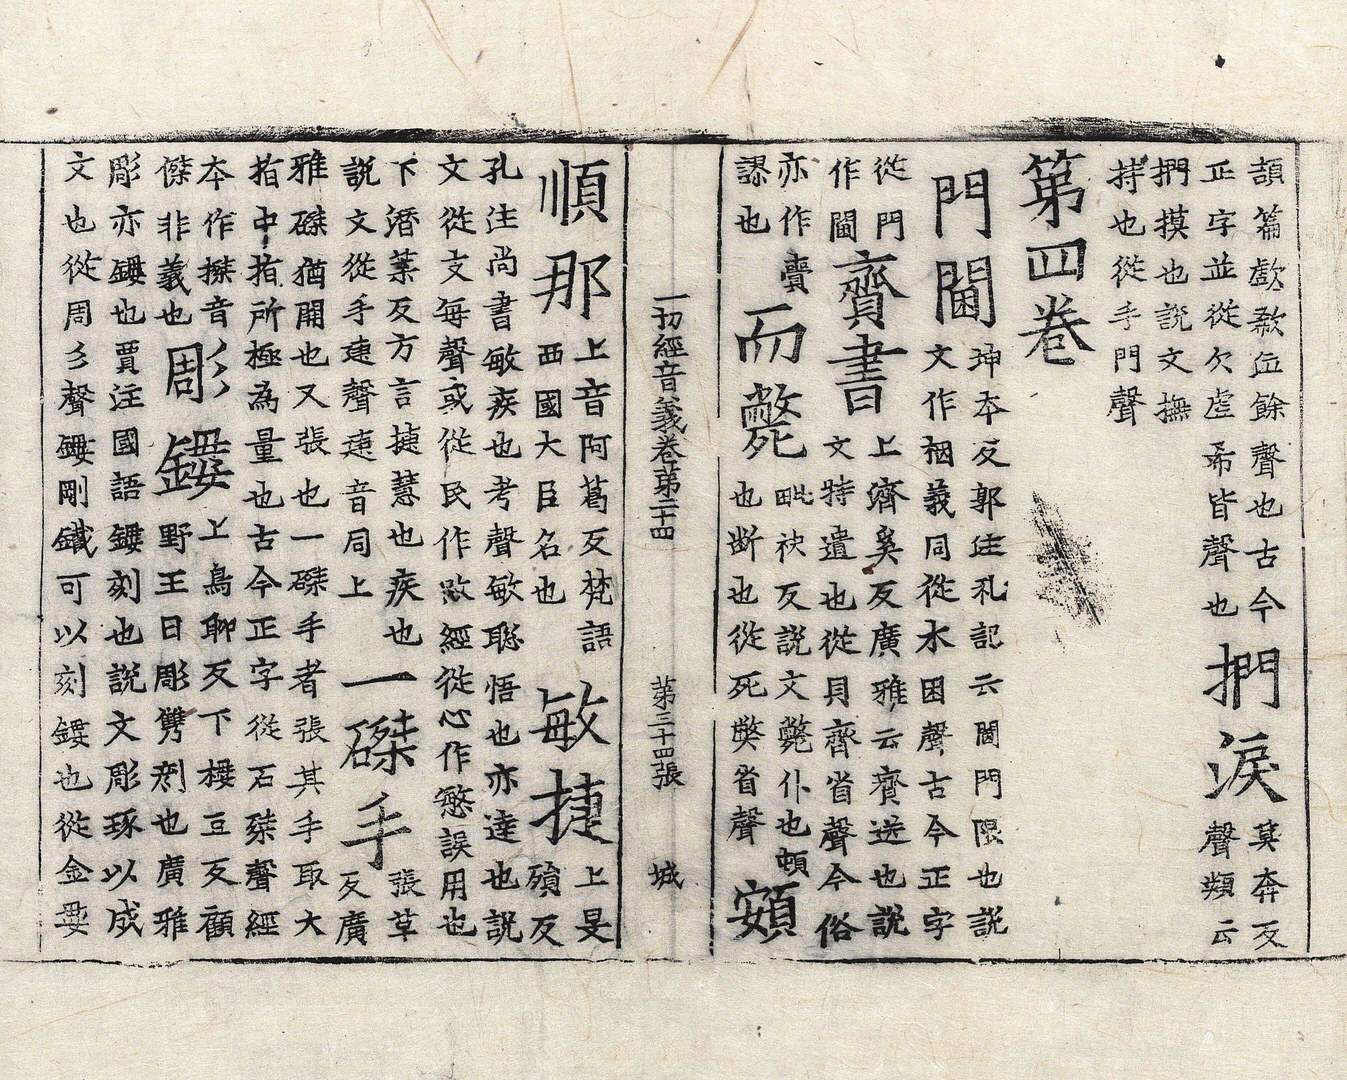 頡篇歔欷㐫餘聲也古今
正字並從欠虛希皆聲也
捫淚
莫奔反
聲類云
捫摸也說文撫
持也從手門聲
第四卷
門閫
坤本反郭注礼記云閫門限也說
文作梱義同從木困聲古今正字
從門
作閫
齎書
上濟奚反廣雅云齎送也說
文特遺也從貝齊省聲今俗
亦作賷
謬也
而斃
毗袂反說文斃仆也頓
也断也從死獘省聲
頞
順那
上音阿葛反梵語
西國大臣名也
敏捷
上旻
殞反
孔注尚書敏疾也考聲敏聡悟也亦達也說
文從攴每聲或從民作敃經從心作慜誤用也
下潛葉反方言捷慧也疾也
說文從手疌聲疌音同上
一磔手
張革
反廣
雅磔猶開也又張也一磔手者張其手取大
指中指所極為量也古今正字從石桀聲經
本作搩音
傑非義也
彫鏤
上鳥聊反下樓豆反顧
野王曰彫鐫刻也廣雅
彫亦鏤也賈注國語鏤刻也說文彫琢以成
文也從周彡聲鏤剛鐵可以刻鏤也從金婁
一切經音義卷第二十四
第三十四張
城